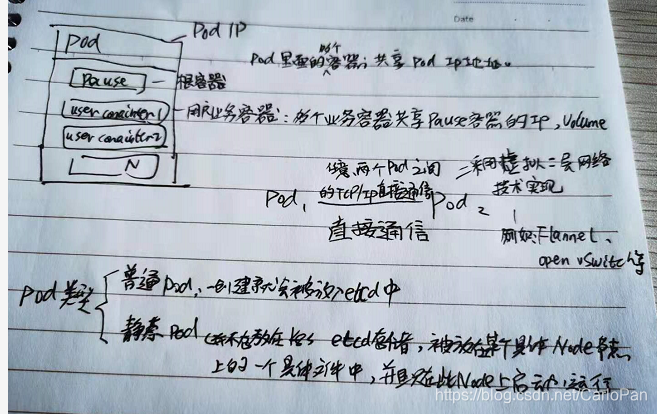 Date
Pod
Pod IP
Pod里面的多个容器,共享Pod Ip地址。
Pause
根容器
user conainter1
用户业务容器:多个业务容器共享Pause容器的IP,Volume
user conainter2
N
任意两个Pod之间
的TCP/IP直接通信
Pod1
Pod2
直接通信
采用虚拟二层网络
技术实现
例如:Flannel、
open vSwitch等
Pod类型
普通Pod,一旦创建就会被放入etcd中
静态Pod(并不存放在k8s etcd存储,被存放在某个具体Node节点
上的一个具体文件中,并且只在此Node上启动、运行
https://blog.csdn.net/CarloPan